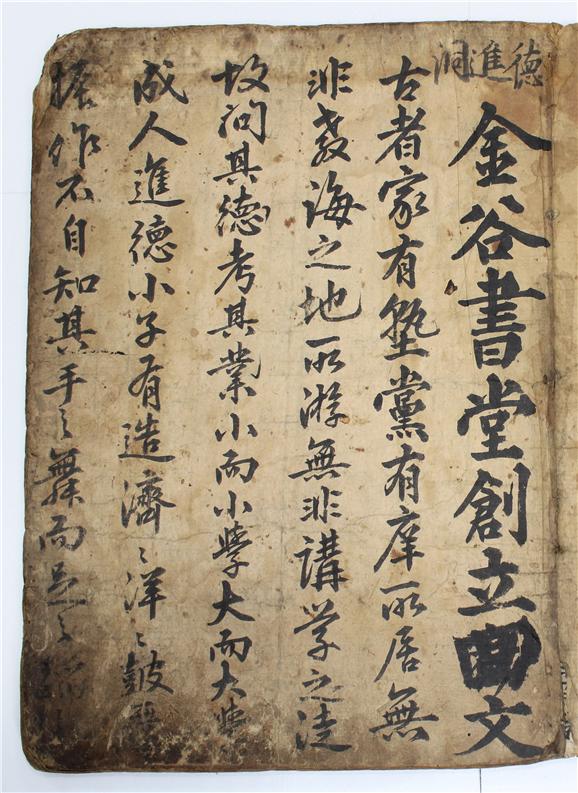 德進洞
金谷書堂創立文
古者家有塾黨有庠所居無
非教誨之地所游無非講学之徒
故問其德考其業小而小學大而大學
成人進德小子有造濟〻洋〻鼓
振作不自知其手之舞而足之蹈